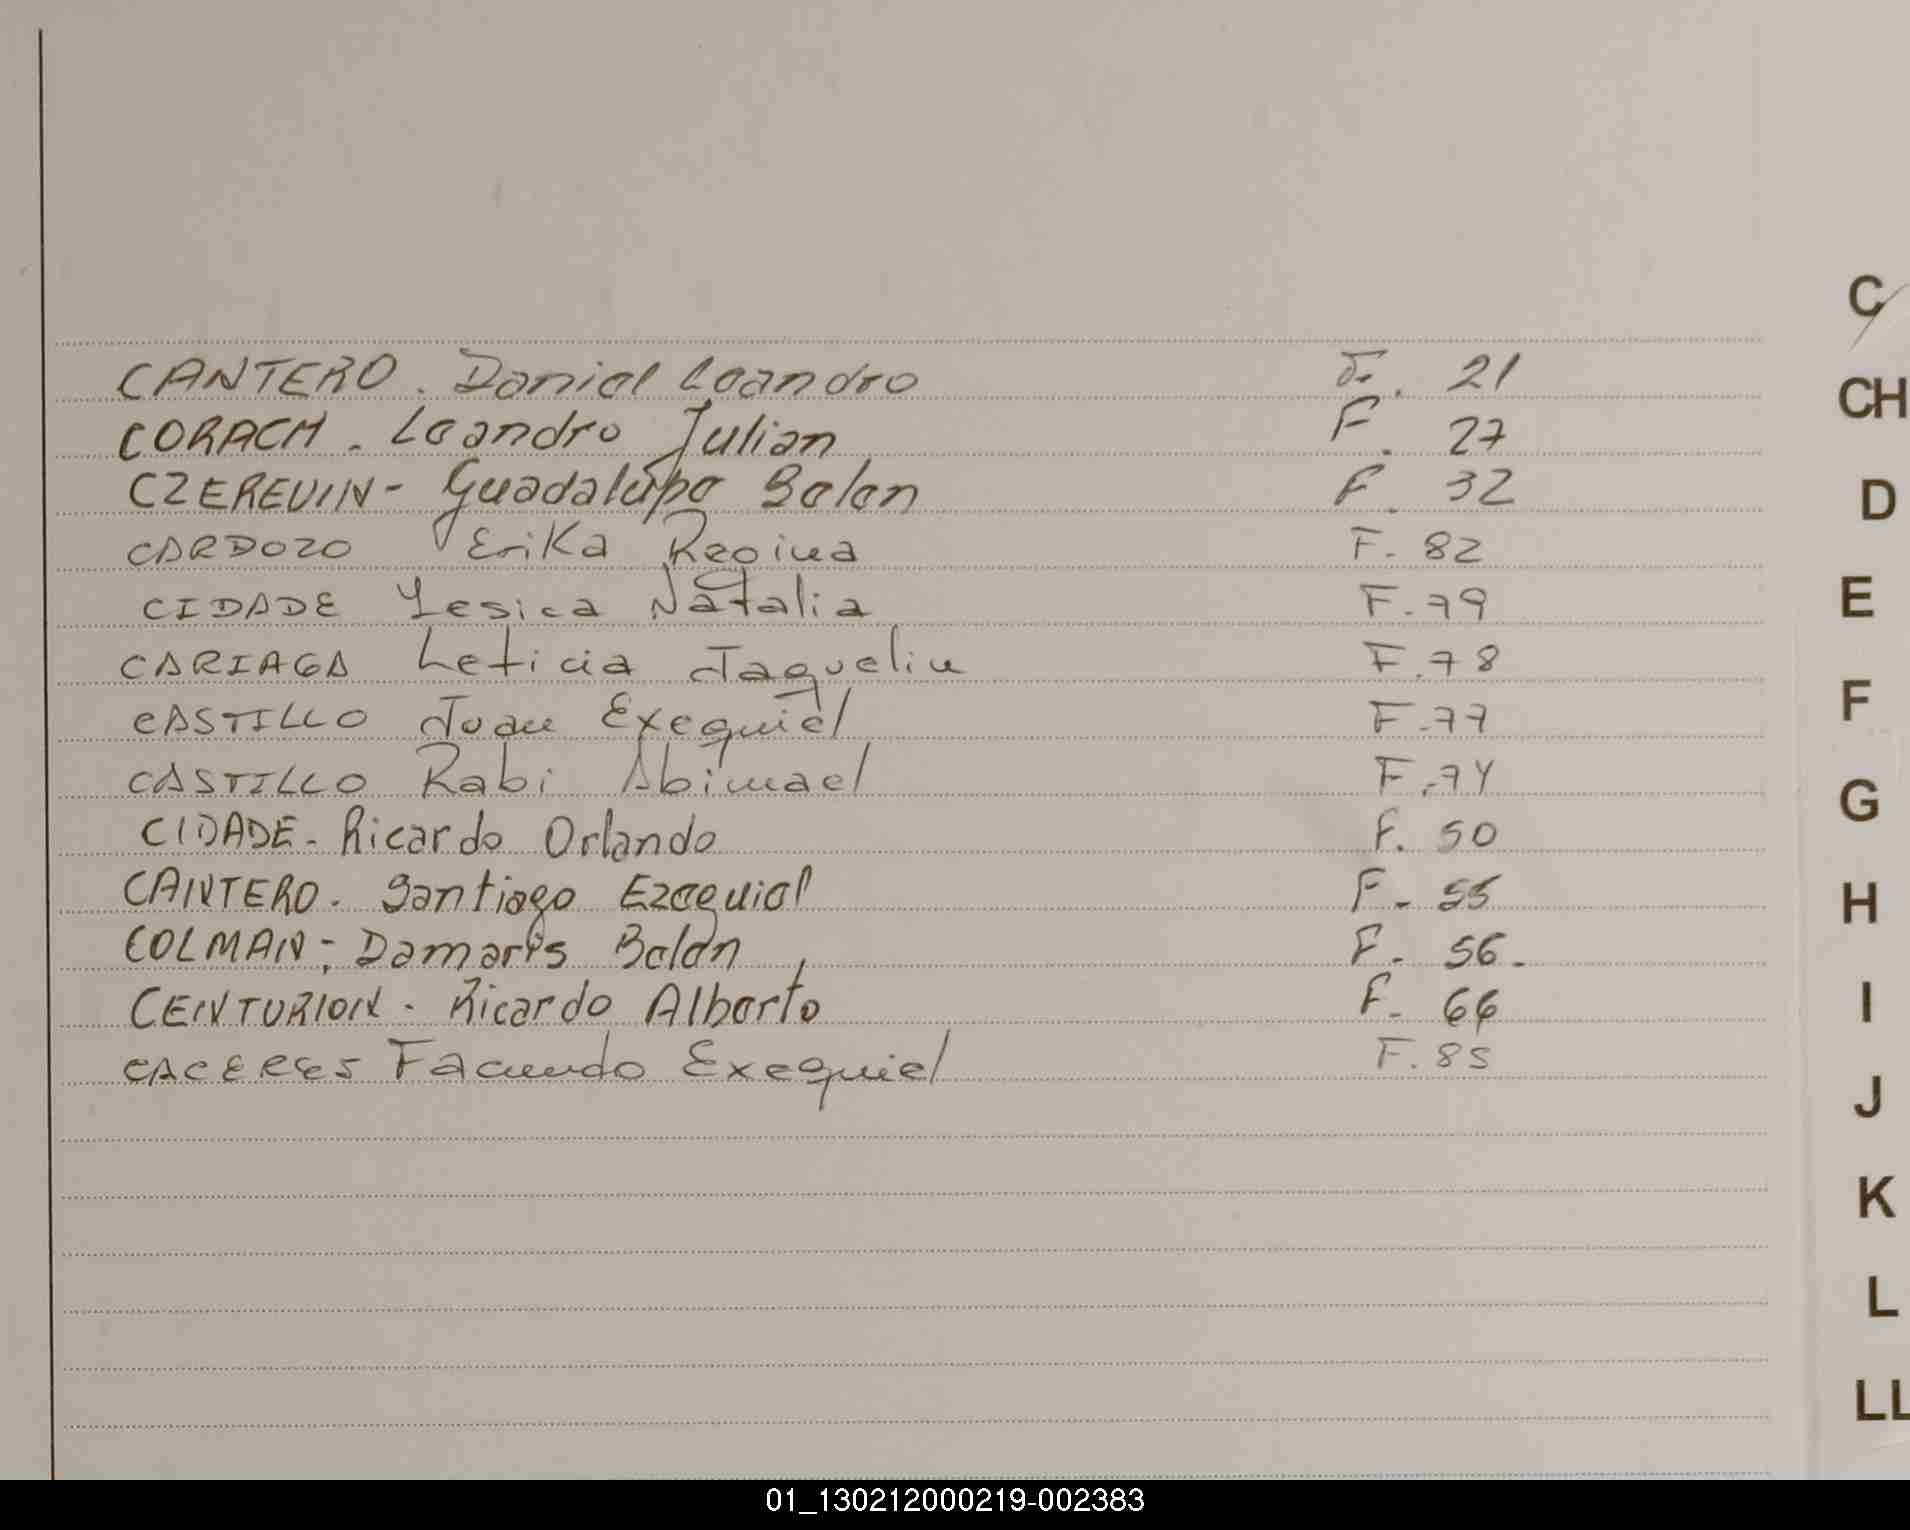 CANTERO. Daniel Leandro F. 21
CORACH. Leandro Julian F. 27
CZEREVIN- Guadalupe Belen F. 32
CARDOZO Erika Regina F. 82
CIDADE Yesica Natalia F. 79
CARIAGA Leticia Jaquelin F. 78
CASTILLO Juan Exequiel F. 77
CASTILLO Rabi Abimael F. 74
CIDADE- Ricardo Orlando F. 50
CANTERO. Santiago Ezequiel F- 55
COLMAN; Damaris Belen F. 56.
CENTURION- Ricardo Alberto F- 66
CACERES Facundo Exequiel F. 85
C
CH
D
E
F
G
H
I
J
K
L
LL
01_130212000219-002383